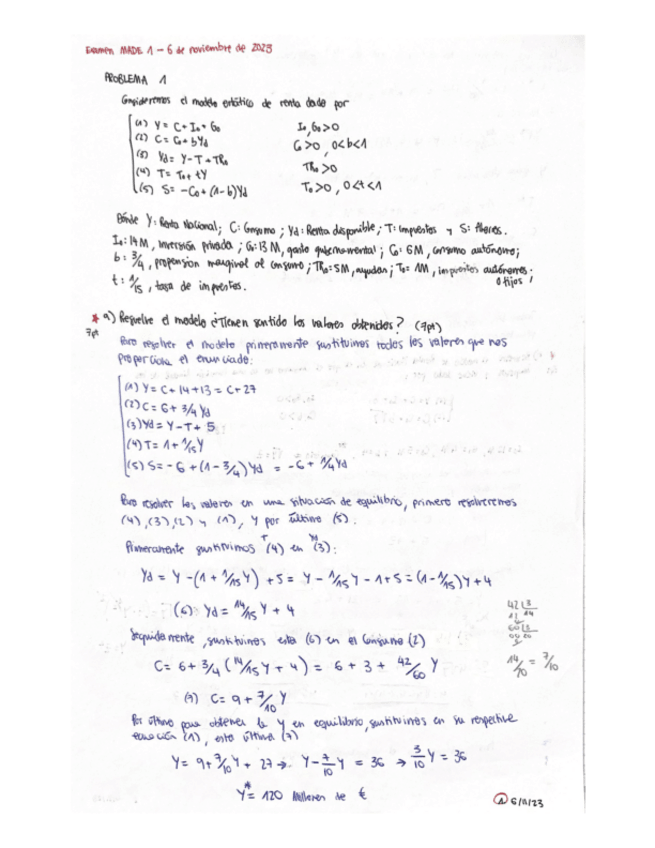 Examen MADE 1 - 6 de noviembre de 2023
PROBLEMA 1
Consideremos el modelo estático de renta dado por
(1) Y = C + I₀ + G₀ I₀, G₀ > 0
(2) C = C₀ + bYd C₀ > 0, 0 < b < 1
(3) Yd = Y - T + TR₀ TR₀ > 0
(4) T = T₀ + tY T₀ > 0, 0 < t < 1
(5) S = -C₀ + (1-b)Yd
Dónde Y: Renta Nacional; C: Consumo; Yd: Renta disponible; T: impuestos y S: Ahorro.
I₀: 14M, inversión privada; G₀: 13M, gasto gubernamental; C₀: 6M, consumo autónomo;
b: 3/4, propensión marginal al consumo; TR₀: 5M, ayudas; T₀: 1M, impuestos autónomos
o fijos;
t: 1/15, tasa de impuestos.
* a) Resuelve el modelo ¿Tienen sentido los valores obtenidos? (7pt)
7pt
Para resolver el modelo primeramente sustituimos todos los valores que nos
proporciona el enunciado:
(1) Y = C + 14 + 13 = C + 27
(2) C = 6 + 3/4 Yd
(3) Yd = Y - T + 5
(4) T = 1 + 1/15 Y
(5) S = -6 + (1 - 3/4) Yd = -6 + 1/4 Yd
Para resolver los valores en una situación de equilibrio, primero resolveremos
(4), (3), (2) y (1), y por último (5).
Primeramente sustituimos T (4) en Yd (3):
Yd = Y - (1 + 1/15 Y) + 5 = Y - 1/15 Y - 1 + 5 = (1 - 1/15) Y + 4
(6) Yd = 14/15 Y + 4
Seguidamente, sustituimos esta (6) en el Consumo (2)
C = 6 + 3/4 (14/15 Y + 4) = 6 + 3 + 42/60 Y
14/20 = 7/10
(7) C = 9 + 7/10 Y
Por último para obtener la Y en equilibrio, sustituimos en su respectiva
ecuación (1), esta última (7)
Y = 9 + 7/10 Y + 27 → Y - 7/10 Y = 36 → 3/10 Y = 36
Y* = 120 Millones de €
① 6/11/23